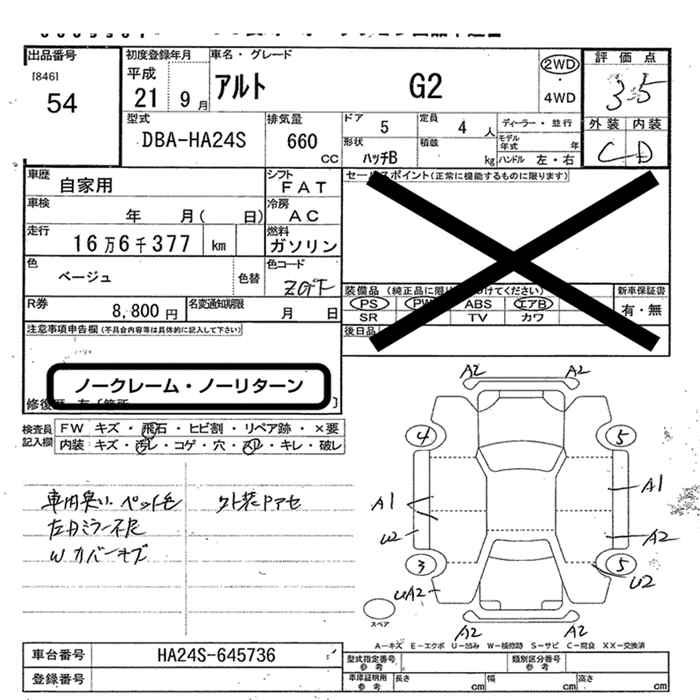 出品番号 初度登録年月 車名・グレード 2WD 評価点
[846] 平成 アルト G2 ・ 3.5
54 21 9月 4WD 外装 内装
型式 排気量 ドア 5 定員 4人 ディーラー・並行 C D
DBA-HA24S 660 CC 形状 ハッチB 積載 kg モデル年式 年
ハンドル 左・右
車歴 自家用 シフト FAT セールスポイント(正常に機能するものに限ります)
車検 年 月( 日) 冷房 AC
走行 16万6千377 km 燃料 ガソリン
色 ベージュ 色替 色コード ZGF 装備品 (純正品に限り 付けてください) 新車保証書
R券 8,800円 名変通知期限 月 日 PS PW ABS エアB 有・無
SR TV カワ
注意事項申告欄 (不具合内容等は具体的に記入して下さい) 後日品
ノークレーム・ノーリターン
修復歴
検査員記入欄 FW キズ・飛石・ヒビ割・リペア跡・×要
内装 キズ・汚レ・コゲ・穴・スレ・キレ・破レ
車内臭い ペット毛 外装Pアセ
左ドミラー不良
W カバーキズ
A2 A2
4 5
A1 A1
U2 A2
3 5
UA2 U2
A2 A2
スペア
A-キズ E-エクボ U-凹み W-補修跡 S-サビ C-腐食 XX-交換済
車台番号 HA24S-645736 型式指定番号 参考 類別区分番号 参考
登録番号 車庫証明用 参考 長さ cm 幅 cm 高さ cm